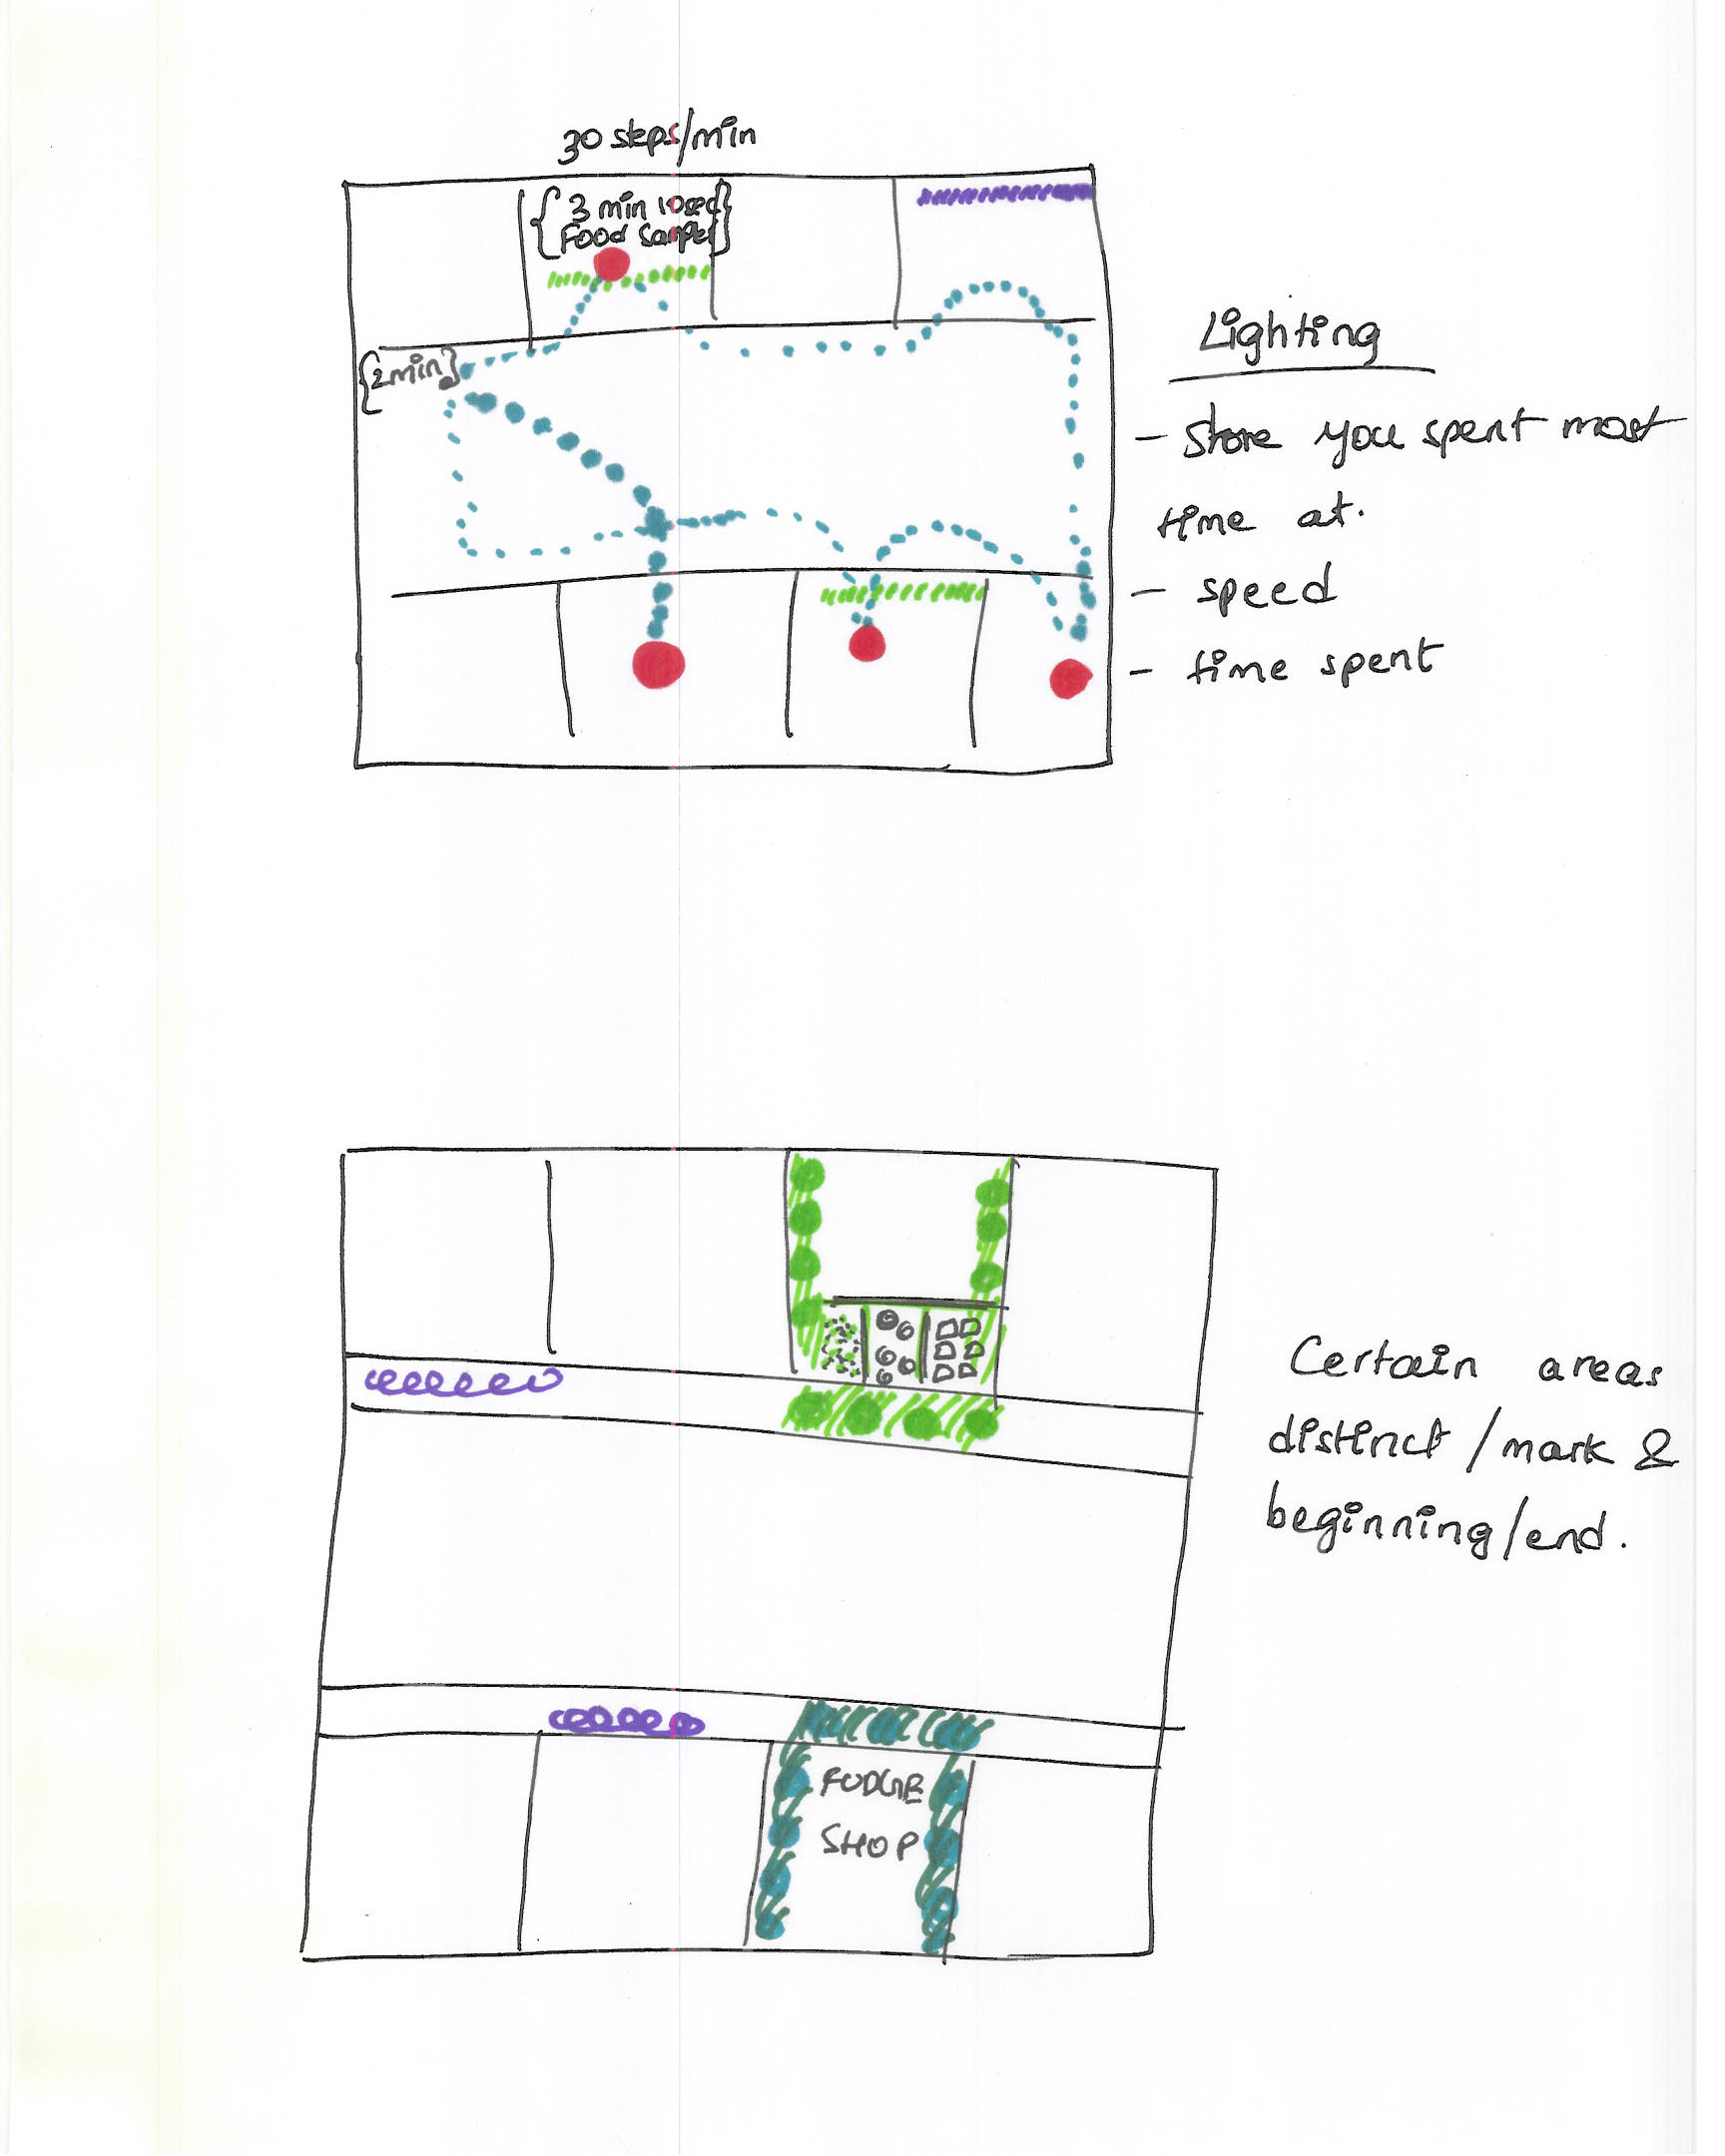 30 steps/min
{3 min 10sec}
{Food Sample}
{2min}
Lighting
- Store you spent most
time at.
- speed
- time spent
Certain areas
distinct / mark &
beginning/end.
FUDGE
SHOP